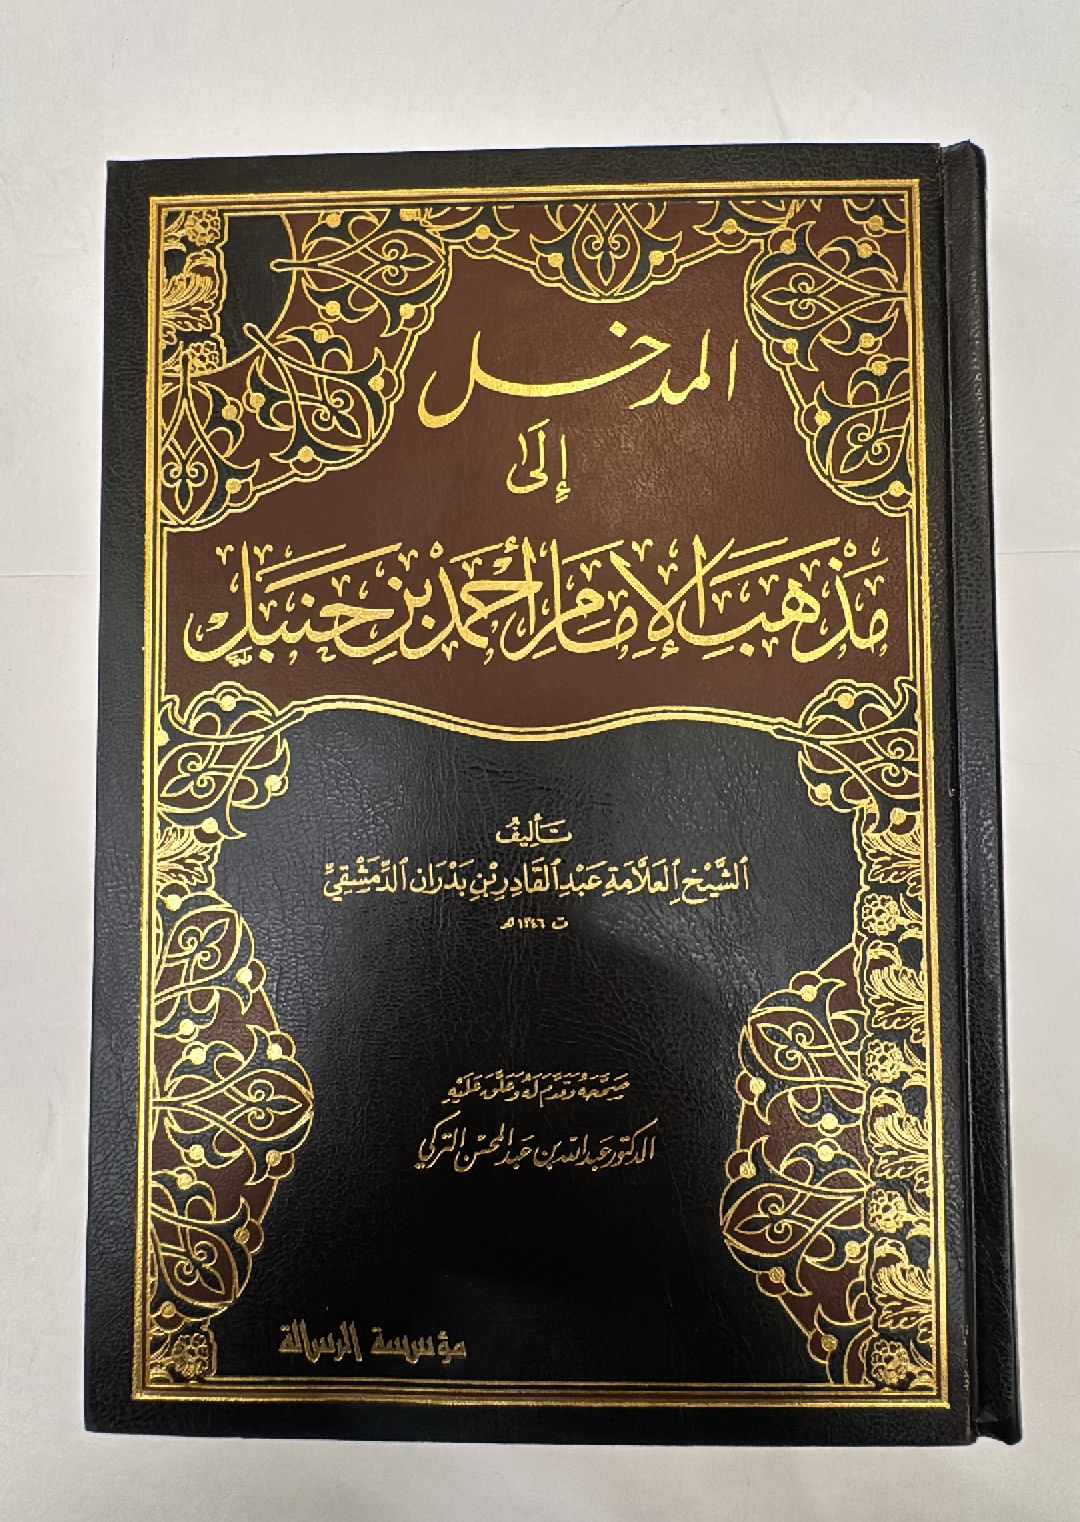 المدخل
إِلَىٰ
مَذْهَبِ الإِمَامِ أَحْمَدَ بْنِ حَنْبَلٍ
تَأليفُ
الشَّيْخِ العَلَّامَةِ عَبْدِ القَادِرِ بْنِ بَدْرَان الدِّمَشْقِيِّ
ت ١٣٤٦ هـ
صَحَّحَهُ وَقَدَّمَ لَهُ وَعَلَّقَ عَلَيْهِ
الدكتور عبد الله بن عبد المحسن التركي
مؤسسة الرسالة